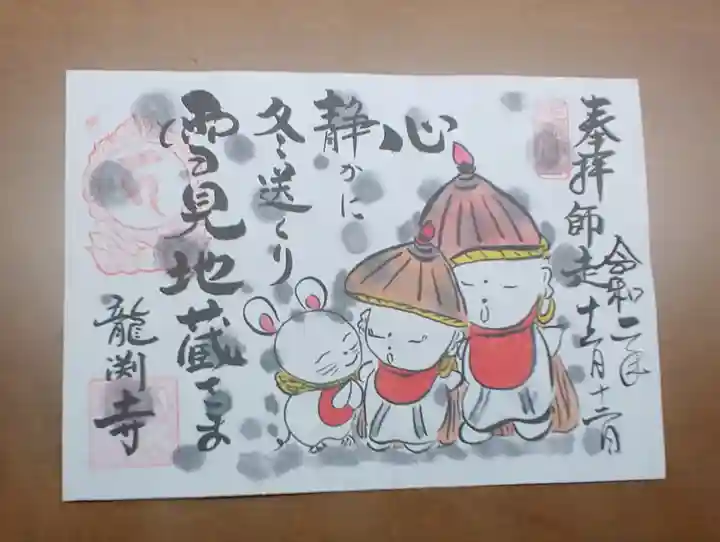 奉拝
師走
令和二年
十二月十二日
心
静かに
冬送くり
雪見地蔵さま
龍渕寺